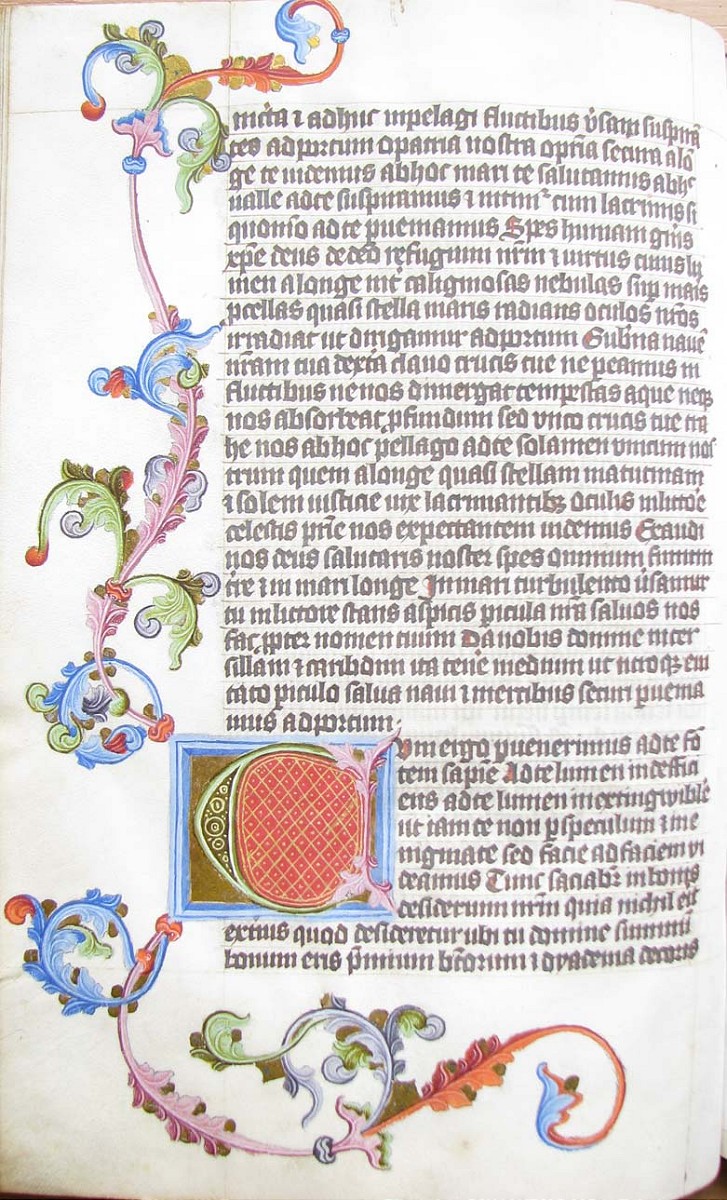 micta ⁊ adhuc inpelagi fluctibus v̄sam̄ suspirā
tes ad portum o patria nostra optīa secura a lō
ge te uidemus ab hoc mari te salutamus ab hͨ
ualle ad te suspiramus ⁊ nitimͬ cum lacrimis si
quomͦ ad te pueniamus Spes humani gn̄is
xp̄e deus de deo refugium nrm̄ ⁊ uirtus cuius lu
men a longe int̄ caliginosas nebulas sup̄ maris
pcellas quasi stella maris radians oculos nr̄os
irradiat ut dirigamur ad portum Gub̄na nauē
nr̄am tua dext̄a clauo crucis tue ne peamus in
fluctibus ne nos dimergat tempestas aque neqꝫ
nos absorbeat pfundum sed vnco crucis tue tra
he nos ab hoc pellago ad te solamen vnicum nos
trum quem a longe quasi stellam matutinam
⁊ solem iusticie vix lacrimantibꝫ oculis in littoͬe
celestis pr̄ie nos expectantem uidemus Exaudi
nos deus salutaris noster spes omnium finium
tr̄e ⁊ in mari longe In mari turbulento v̄samur
tu in littore stans aspicis picula nr̄a saluos nos
fac ꝓpter nomen tuum Da nobis domine inter
sillam ⁊ caribdim ita tene᷑ medium ut utroqꝫ eui
tato piculo salua naui ⁊ mercibus securi puenia
mus ad portum ·
Cvm ergo puenerimus ad te fō
tem sapīe Ad te lumen indeffici
ens ad te lumen inextingwibile
ut iam te non p speculum ⁊ in e
nigmate sed facie ad faciem vi
deamus Tunc saciabͬ in bonis
desiderium nr̄m quia nichil eͥt
exͭius quod desideretur ubi tu domine summū
bonum eris p̄mium bt̄orum ⁊ dyadema decoris